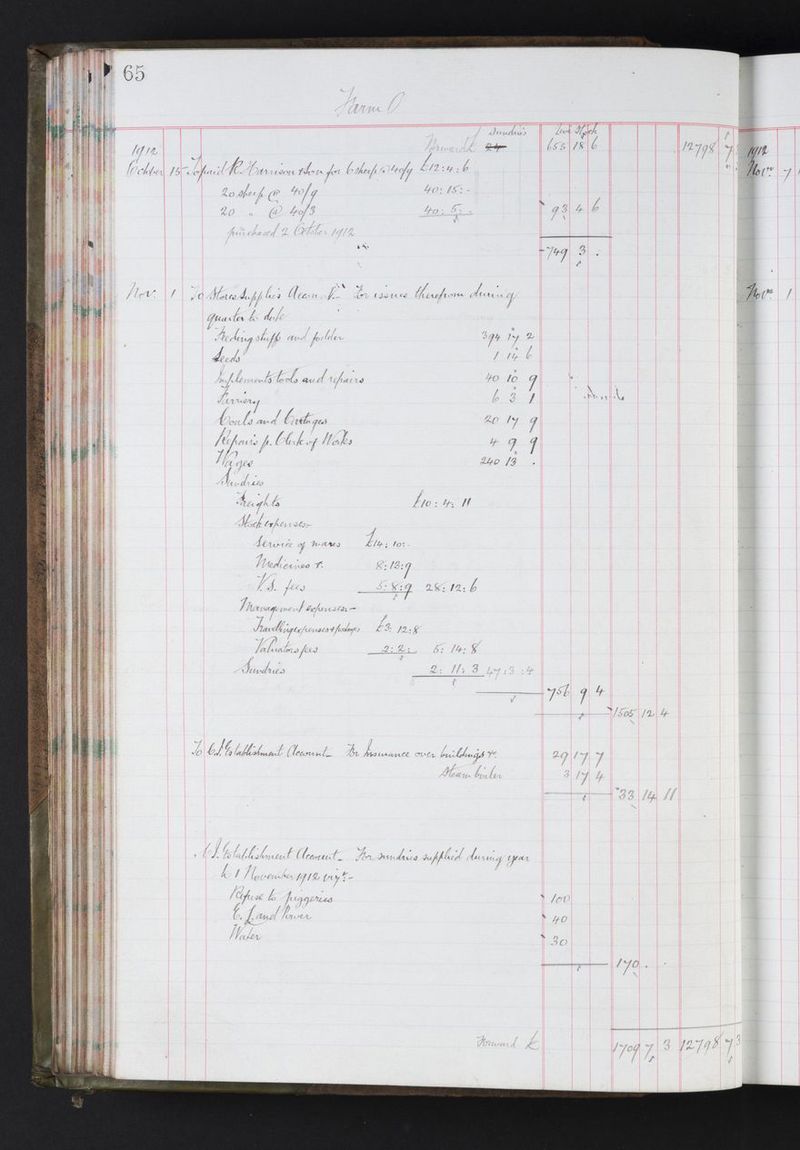 65
Farm
Sundries Live Stock
1912 Forward 655 18 6 12798 7 1912
October 15 To paid R. Harrison & Son for 6 sheep @ 40/9 £12:4:6 Novr 7
20 sheep @ 40/9 40:15:-
20 " @ 40/3 40:5:- 93 4 6
purchased 2 October 1912
749 3 .
Nov. 1 To Stores Supplies Account For issues therefrom during Novr 1
quarter to date
Feeding stuffs and fodder 394 17 2
Seeds 1 14 6
Implements tools and repairs 40 10 9
Farriery 6 3 1
Coals and Cartages 20 17 9
Repairs p. Clerk of Works 4 9 9
Wages 240 13 .
Sundries
Freights £10:4:11
Stock expenses-
Service of mares £14:10:-
Medicines &c 8:13:9
V.S. fees 5:8:9 28:12:6
Management expenses-
Travelling expenses & postages £3:12:8
Valuators fees 2:2:- 5:14:8
Sundries 2:11:3 47:3:4
756 9 4
1505 12 4
To C.I. Establishment Account - For Insurance over buildings &c. 29 17 7
Steam boiler 3 17 4
33 14 11
" C.I. Establishment Account - For sundries supplied during year
to 1 November 1912 vizt:-
Refuse to piggeries 100
E. L. and Power 40
Water 30
170 . .
Forward 1709 7 3 12798 7 3